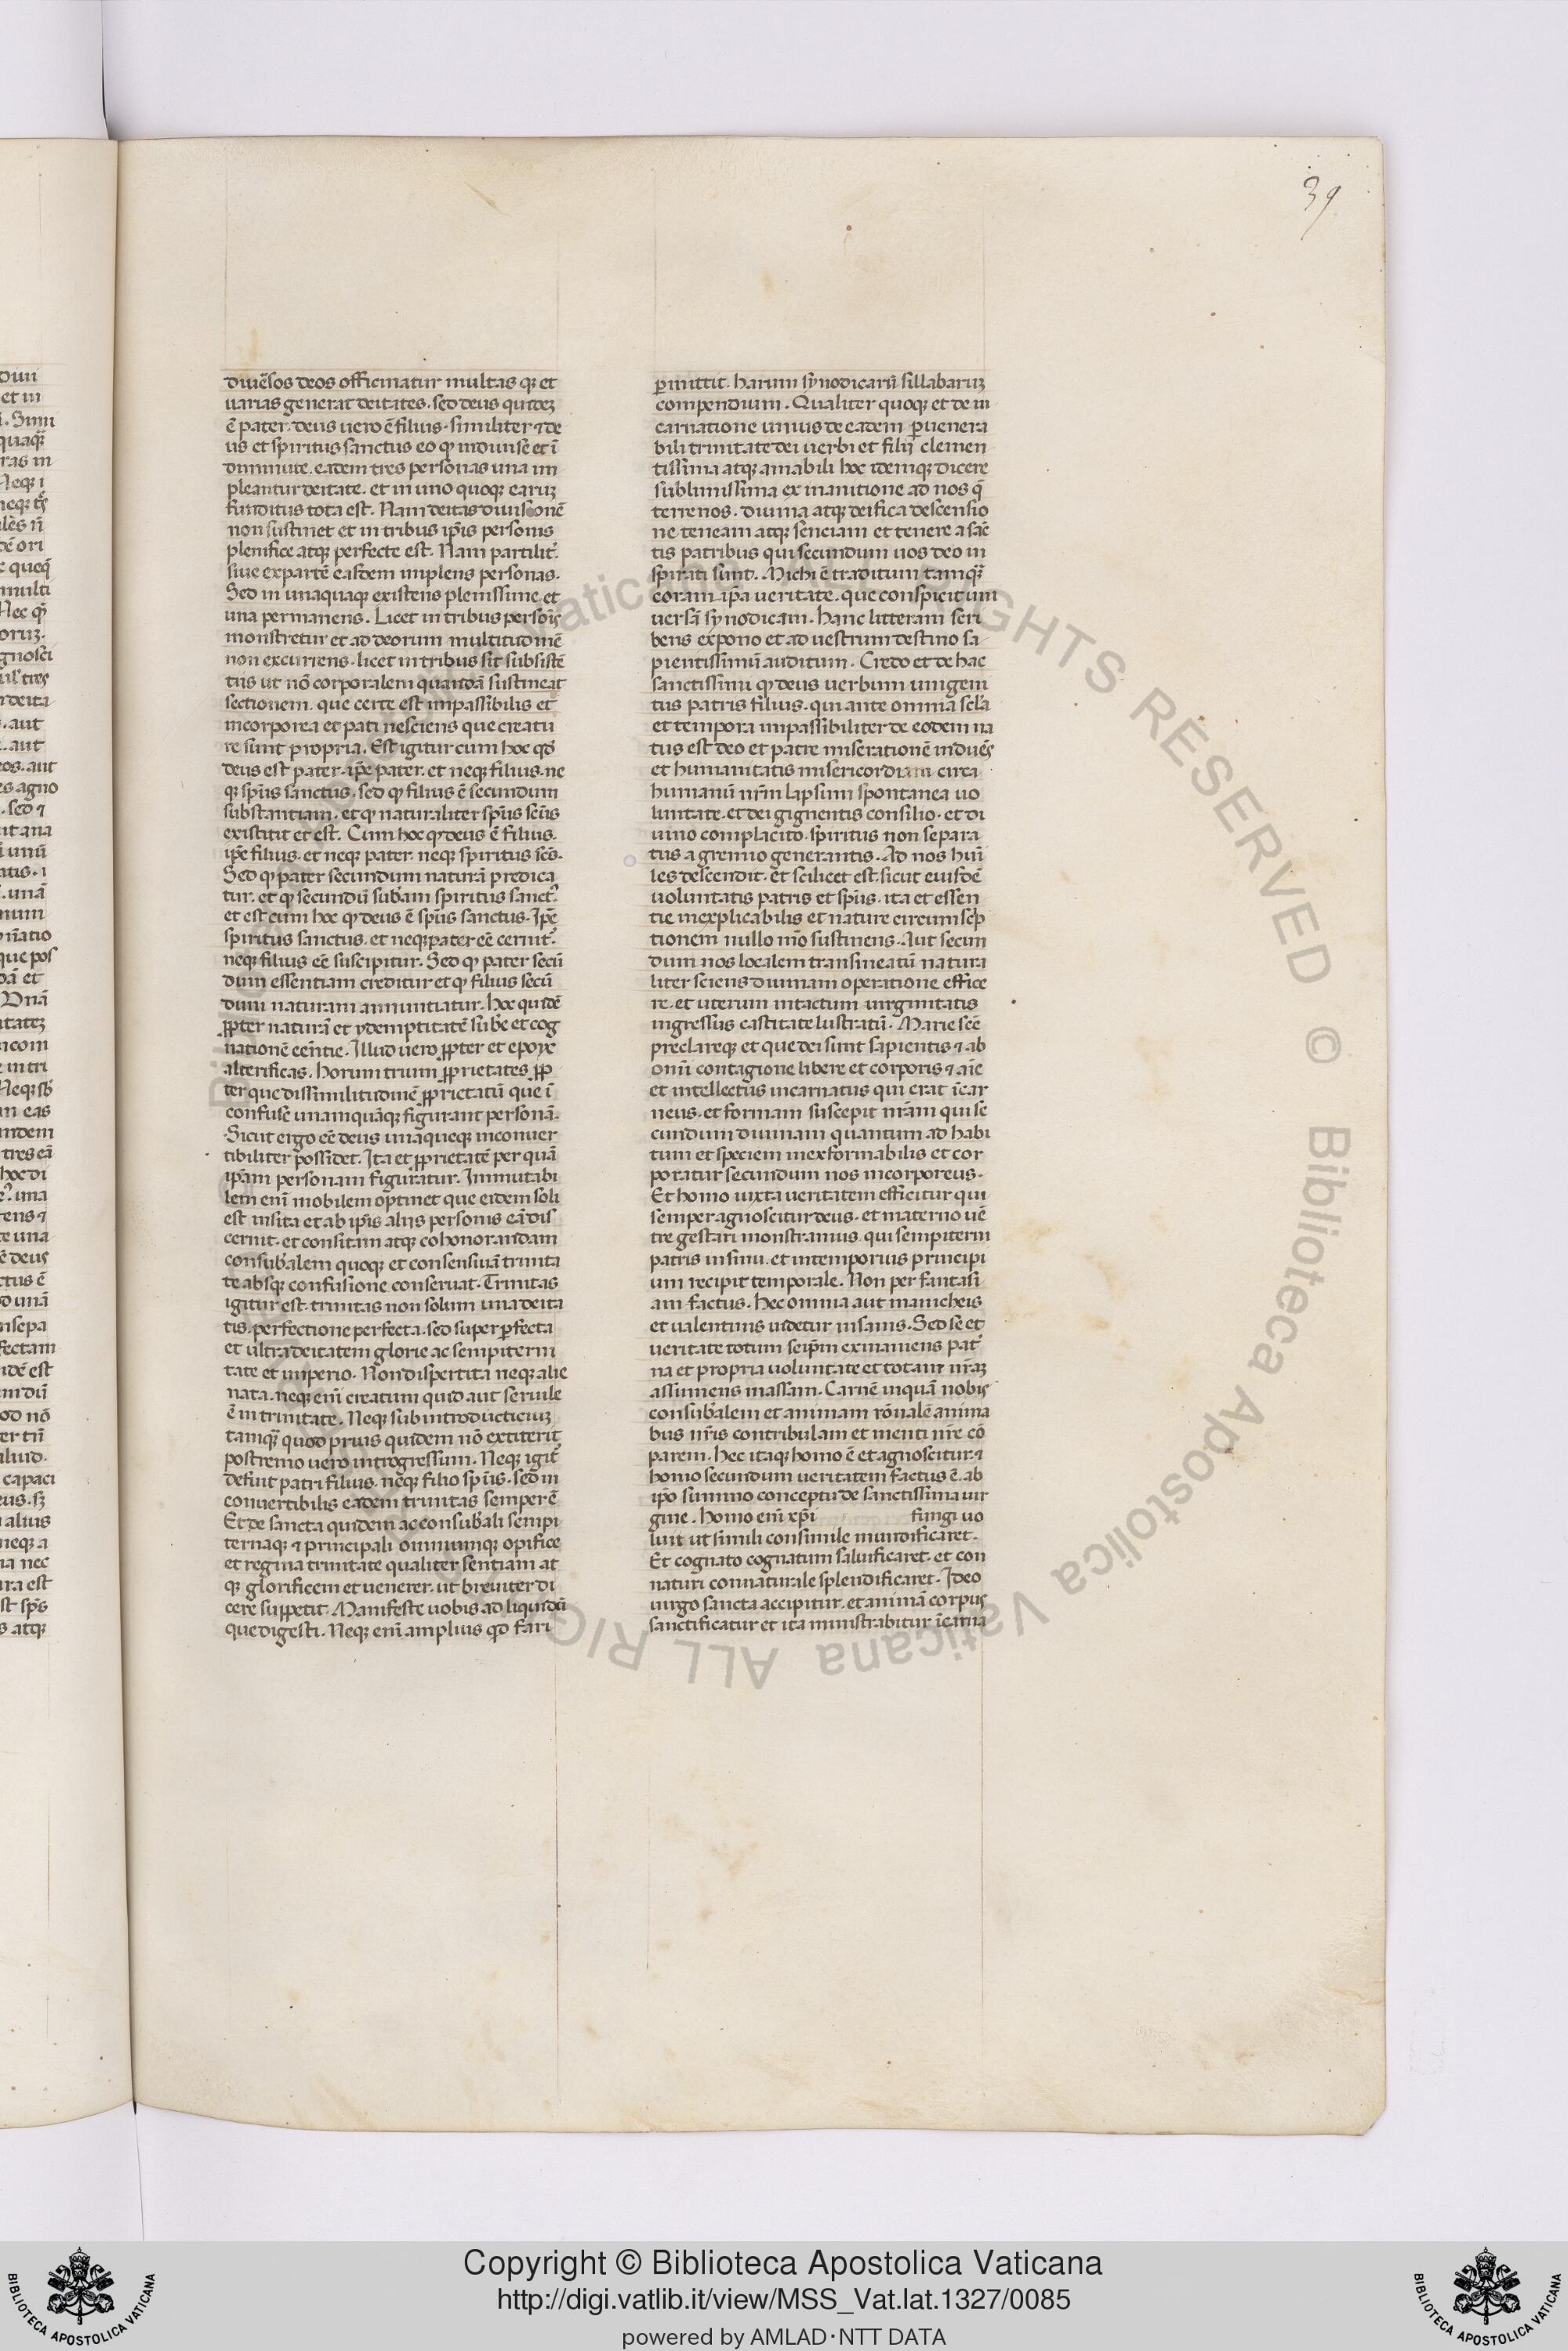 39
diuẽsos deos officinatur multas qꝫ et
uarias generat deitates. sed deus quideꝫ
ẽ pater. deus uero ẽ filius. similiter ⁊ de
us et spiritus sanctus eo ꝙ indiuise et ĩ
diminute. eadem tres personas una im
pleantur deitate. et in uno quoqꝫ earuꝫ
funditus tota est. Nam deitas diuisionẽ
non sustinet et in tribus ip̃is personis
plenifice atqꝫ perfecte est. Nam partilit̾
siue ex partẽ easdem implens personas.
Sed in unaquaqꝫ existens plenissime et
una permanens. Licet in tribus persõis
monstretur et ad deorum multitudinẽ
non excurrens. licet in tribus sit subsistẽ
tiis ut nõ corporalem quandã sustineat
sectionem. que certe est impassibilis et
incorporea et pati nesciens que creatu
re sunt propria. Est igitur cum hoc qđ
deus est pater. ip̃e pater. et neqꝫ filius. ne
qꝫ sp̃us sanctus. sed ꝙ filius ẽ secundum
substantiam. et ꝙ naturaliter sp̃us sc̃us
existitit et est. Cum hoc ꝙ deus ẽ filius.
ip̃e filius. et neqꝫ pater. neqꝫ spiritus sc̃s.
Sed ꝙ pater secundum naturã predica
tur. et ꝙ secundũ sub̃am spiritus sanct᾽.
et est cum hoc ꝙ deus ẽ sp̃us sanctus. Ip̃e
spiritus sanctus. et neqꝫ pater eẽ cernit᾽.
neqꝫ filius eẽ suscipitur. Sed ꝙ pater secũ
dum essentiam creditur et ꝙ filius secũ
dum naturam annuntiatur. hoc quidẽ
ꝓpter naturã et ydemptitatẽ sub̃e et cog
nationẽ eẽntie. Illud uero ꝓpter et epoye
alterificas. horum trium ꝓprietates ꝓp
ter que dissimilitudinẽ ꝓprietatũ que ĩ
confuse unamquãqꝫ figurant personã.
Sicut ergo eẽ deus unaqueqꝫ inconuer
tibiliter possidet. Ita et ꝓprietatẽ per quã
ip̃am personam figuratur. Immutabi
lem enĩ mobilem optinet que eidem soli
est insita et ab ip̃is aliis personis eã dis
cernit. et consitam atqꝫ cohonorandam
consub̃alem quoqꝫ et consensiuã trinita
te absqꝫ confusione conseruat. Trinitas
igitur est. trinitas non solum una deita
tis. perfectione perfecta. sed super ꝑfecta
et ultra deitatem glorie ac sempiterni
tate et imperio. Non dispertita neqꝫ alie
nata. neqꝫ enĩ creatum quid aut seruile
ẽ in trinitate. Neqꝫ subintroducticiuꝫ
tamqꝫ̃ quod prius quidem nõ extiterit
postremo uero introgressum. Neqꝫ igit᾽
defuit patri filius. neqꝫ filio sp̃us. sed in
conuertibilis eadem trinitas semper ẽ
Et de sancta quidem ac consub̃ali sempi
ternaqꝫ ⁊ principali omniumqꝫ opifice
et regina trinitate qualiter sentiam at
qꝫ glorificem et uenerer. ut breuiter di
cere suppetit. Manifeste uobis ad liquidũ
que digesti. Neqꝫ enĩ amplius qđ fari
ꝑmittit. harum synodicarũ sillabaruꝫ
compendium. Qualiter quoqꝫ et de in
carnatione unius de eadem ꝑuenera
bili trinitate dei uerbi et filii clemen
tissima atqꝫ amabili hoc idemqꝫ dicere
sublimissima ex inanitione ad nos q̃
terrenos. diuina atqꝫ deifica descensio
ne teneam atqꝫ senciam et tenere a sãc
tis patribus qui secundum uos deo in
spirati sunt. Michi ẽ traditum tamqꝫ̃
coram ip̃a ueritate. que conspicit uni
uersã synodicam. hanc litteram scri
bens expono et ad uestrum destino sa
pientissimũ auditum. Credo et de hac
sanctissimi ꝙ deus uerbum unigeni
tus patris filius. qui ante omnia sc̃la
et tempora impassibiliter de eodem na
tus est deo et patre miserationẽ induẽs
et humanitatis misericordiam circa
humanũ nr̃m lapsum spontanea uo
luntate. et dei gignentis consilio. et di
uino complacito. spiritus non separa
tus a gremio generantis. Ad nos hũi
les descendit. et scilicet est. sicut eiusdẽ
uoluntatis patris et sp̃us. ita et essen
tie inexplicabilis et nature circumscp̃
tionem nullo m̃o sustinens. Aut secun
dum nos localem transmeatũ natura
liter sciens diuinam operatione effice
re. et uterum intactum uirginitatis
ingressus castitate lustratũ. Marie sc̃e
preclareqꝫ et que dei sunt sapientis ⁊ ab
omĩ contagione libere et corporis ⁊ aĩe
et intellectus incarnatus qui erat ĩcar
neus. et formam suscepit nr̃am qui se
cundum diuinam quantum ad habi
tum et speciem inexformabilis et cor
poratur secundum nos incorporeus.
Et homo iuxta ueritatem efficitur qui
semper agnoscitur deus. et materno uẽ
tre gestari monstramus. qui sempiterni
patris in sinu. et intemporius principi
um recipit temporale. Non per fantasi
am factus. hec omnia aut manicheis
et ualentinis uidetur insanis. Sed se et
ueritate totum seip̃m exinaniens pat᾽
na et propria uoluntate et totam nr̃aꝫ
assumens massam. Carnẽ inquã nobis
consub̃alem et animam rõnalẽ anima
bus nr̃is contribulam et menti nr̃e cõ
parem. hec itaqꝫ homo ẽ et agnoscitur. ⁊
homo secundum ueritatem factus ẽ. ab
ip̃o summo conceptu de sanctissima uir
gine. homo enĩ xp̃i fungi uo
luit ut simili consimile mundificaret.
Et cognato cognatum saluificaret. et con
naturi connaturale splendificaret. Ideo
uirgo sancta accipitur. et animã corpus
sanctificatur et ita ministrabitur ĩcarna
Copyright © Biblioteca Apostolica Vaticana
http://digi.vatlib.it/view/MSS_Vat.lat.1327/0085
powered by AMLAD·NTT DATA
BIBLIOTECA APOSTOLICA VATICANA
BIBLIOTECA APOSTOLICA VATICANA